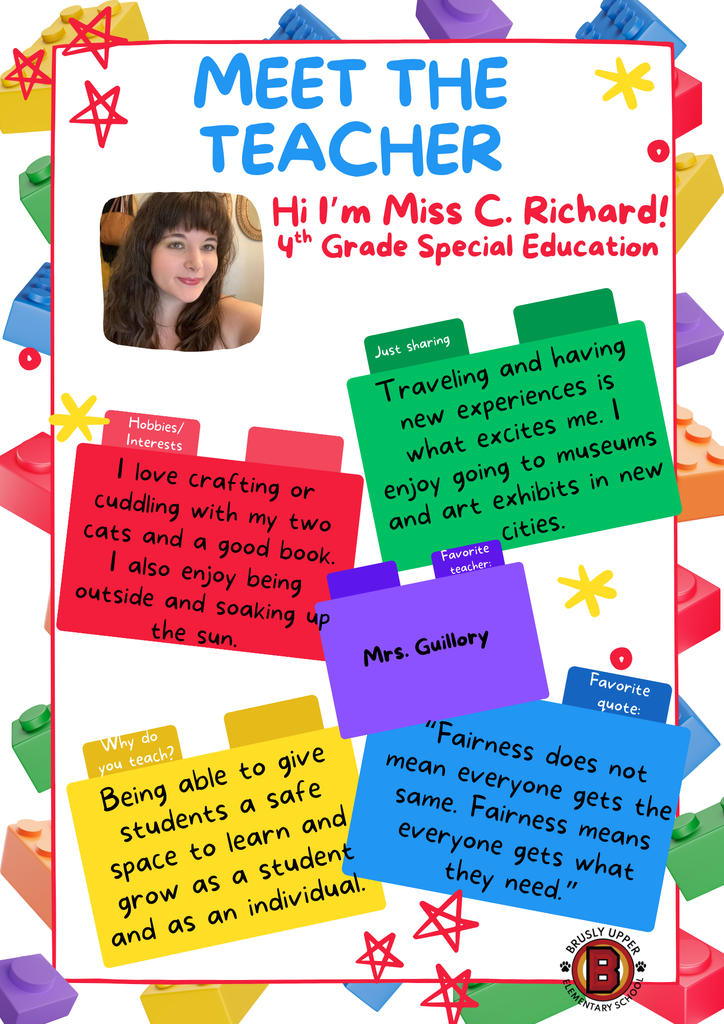 MEET THE
TEACHER
Hi I'm Miss C. Richard!
4th Grade Special Education
Just sharing
Traveling and having
new experiences is
what excites me. I
enjoy going to museums
and art exhibits in new
cities.
Hobbies/
Interests
I love crafting or
cuddling with my two
cats and a good book.
I also enjoy being
outside and soaking up
the sun.
Favorite
teacher:
Mrs. Guillory
Favorite
quote:
"Fairness does not
mean everyone gets the
same. Fairness means
everyone gets what
they need."
Why do
you teach?
Being able to give
students a safe
space to learn and
grow as a student
and as an individual.
BRUSLY UPPER
B
ELEMENTARY SCHOOL